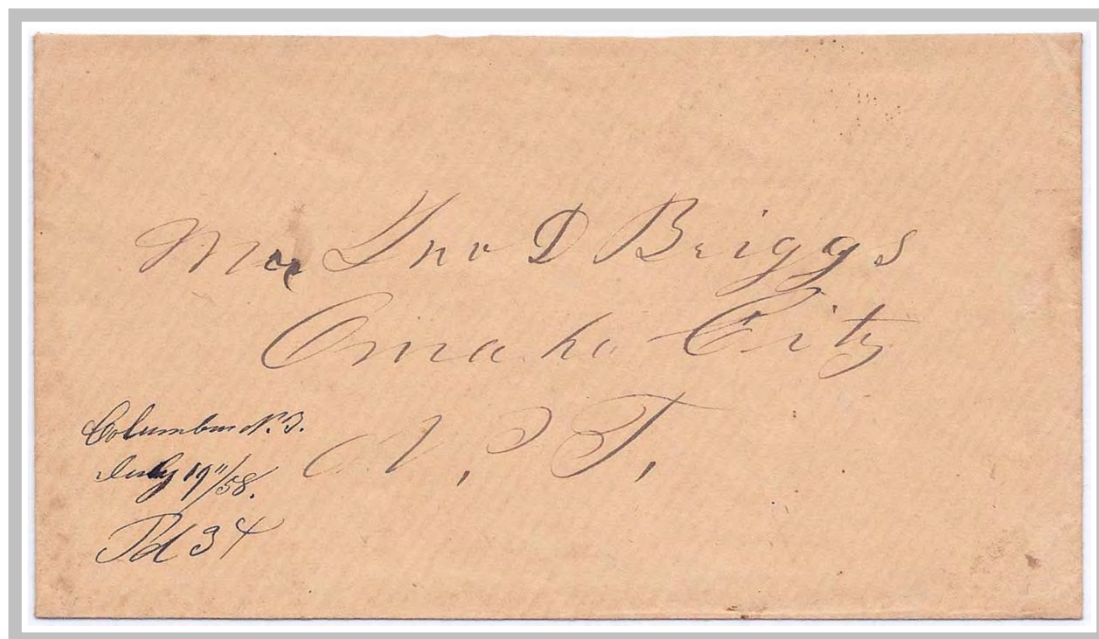 Mr Jno D Briggs
Omaha City
N. T.
Columbus N. T.
July 19"/58.
Pd 3